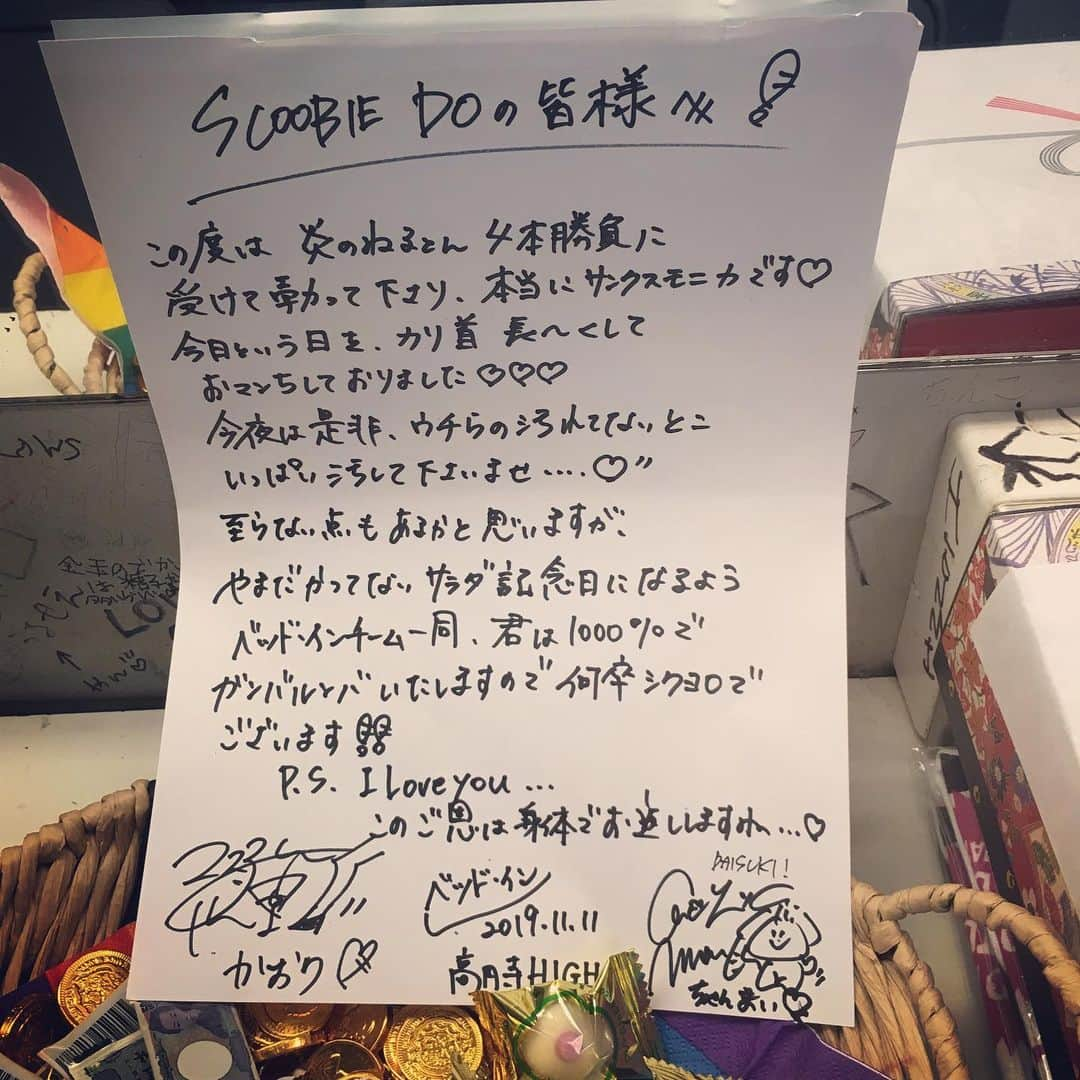 SCOOBIE DOの皆様へ
この度は 炎のねるとん 4本勝負に
受けて勃って下さり、本当にサンクスモニカです♡
今日という日を、カリ首 長〜くして
おマンちしておりました♡♡♡
今夜は是非、ウチらの汚れてないとこ
いっぱい汚して下さいませ....♡"
至らない点もあるかと思いますが、
やまだかつてない サラダ記念日になるよう
ベッド・インチーム一同、君は1000%で
ガンバルンバいたしますので何卒シクヨロで
ございます!!
P.S. I Love you ...
このご恩は身体でお返ししますわ...♡
DAISUKI!
ベッド・イン
2019.11.11
かおり
高円寺HIGH
ちゃんまい♡